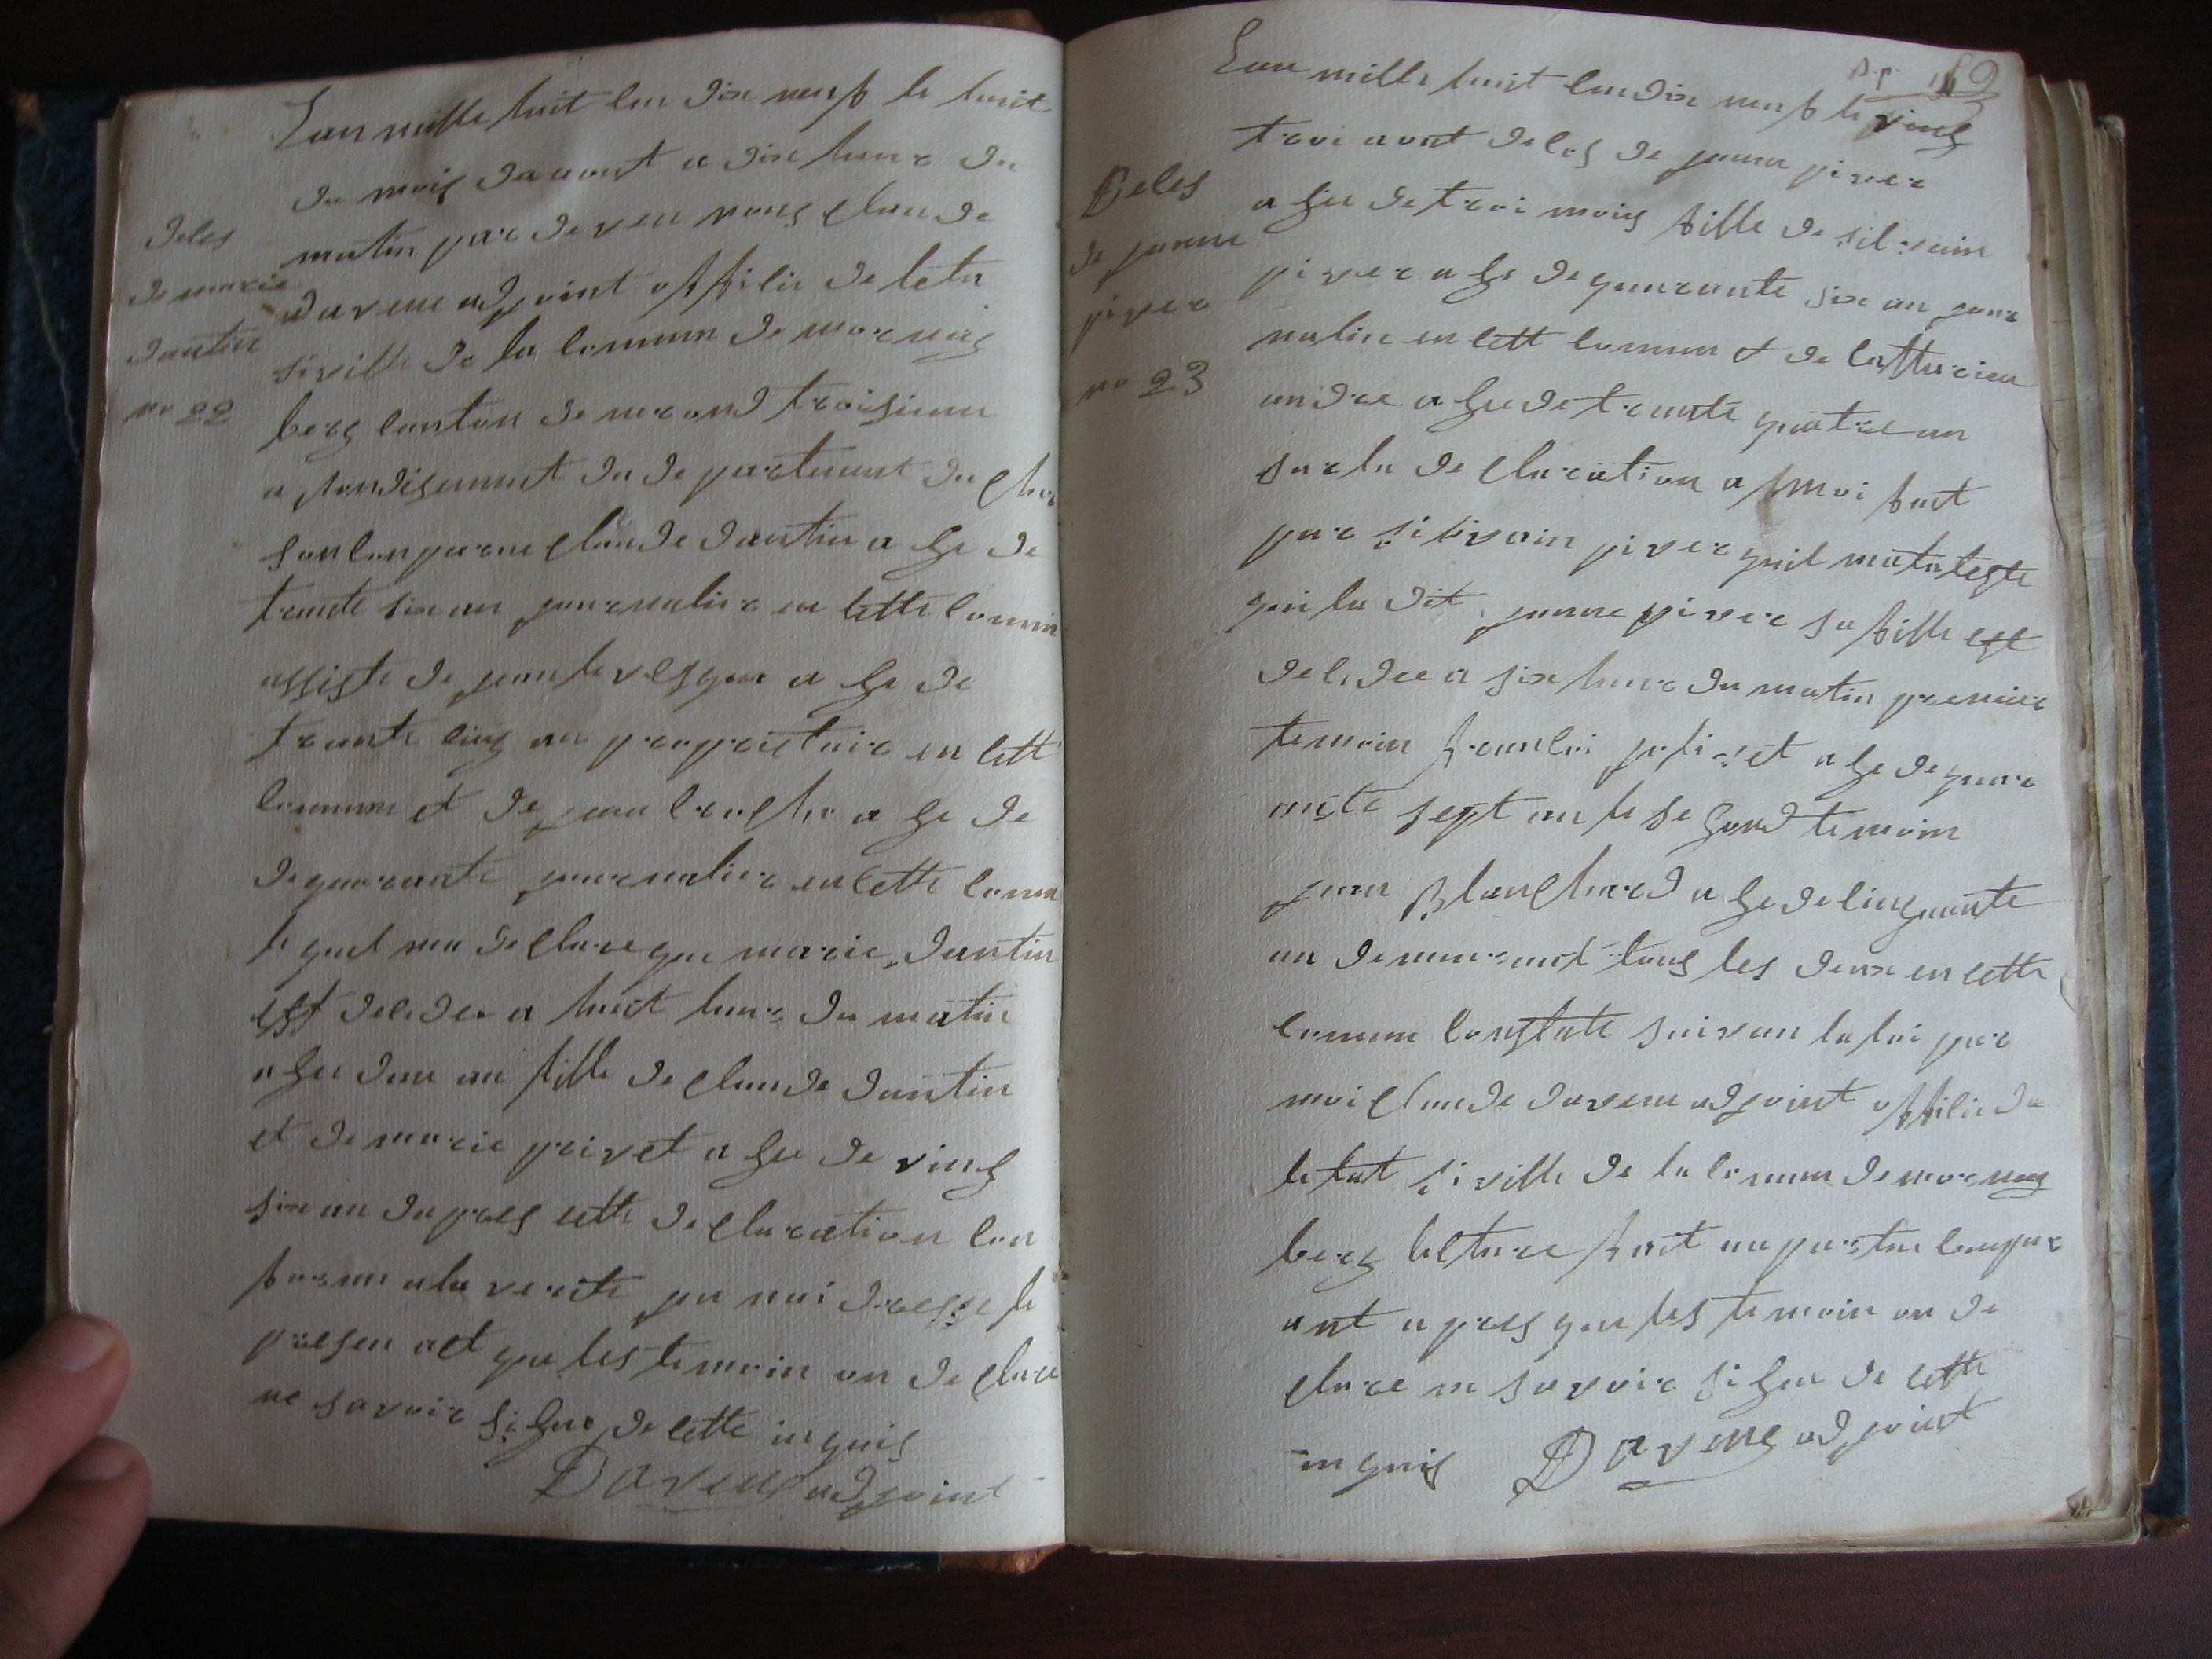 Lan mille huit cen dix neuf le huit
du mois daoust a dix heure du
matin par de ven nous claude
davene adjoint offilié de léta
siville de la comune de mornay
berg canton de nerond troisieme
arondisement du departement du cher
son conparue claude dantin a ge de
trante six an journalier en cette comun
assiste de jean levesque a ge de
trante cinq an propriétaire en cett
comune et de jean a ge de
de quarante journalier en cette comun
le quel ma declare que marie dantin
est decedee a huit heure du matin
agee dun an fille de claude dantin
et de marie privet a gee de ving
six an dapres cette declaration con
forme a la verite jai moi dresse le
presen act que les temoin on declare
ne savoir signe de cette inquis
Davene adjoint
deles
de marie
dantin
no 22
Lan mille huit cen dix neuf le ving
troi aout deles de jeanne piver
a gee de troi mois fille de silvain
piver a ge de quarante six an jour
nalier en cett comun et de
andre a gee de trante quatre an
sur la declaration a moi fait
par silvain piver quil mata teste
qui la dit jeanne piver sa fille est
decedee a six heure du matin premier
temoin francoi a ge de quar
ante sept an le segond temoin
jean Blanchard a ge de cinquante
an demeurant tous les deux en cette
comun constate suivan la loi par
moi claude davene adjoint offilié de
letat siville de la comun de mornay
berg lecture fait au partie conpar
ant apres que les temoin on de
clare ne savoir signe de cette
inquis Davene adjoint
Deles
de jeanne
piver
no 23